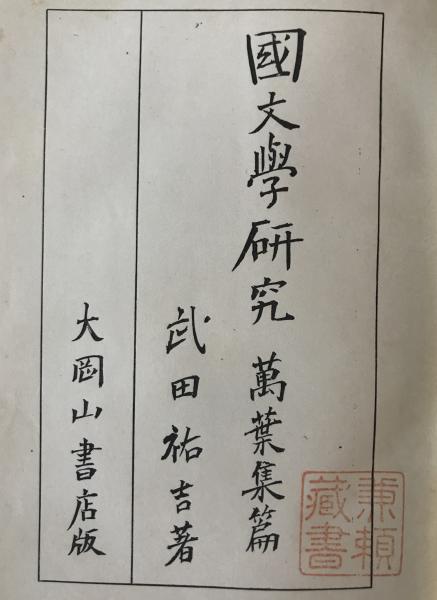 國文學研究 萬葉集篇
武田祐吉著
大岡山書店版
兼頼
藏書